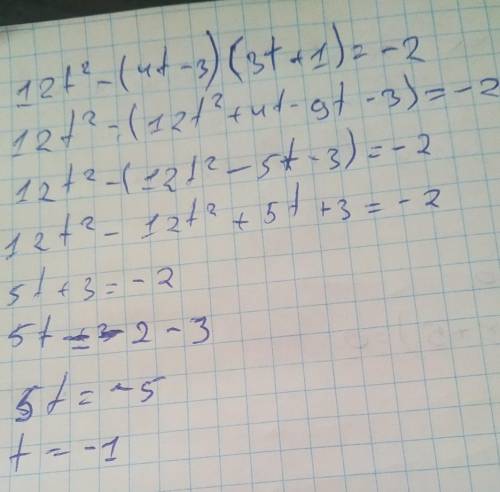 12t² - (4t - 3)(3t + 1) = -2
12t² - (12t² + 4t - 9t - 3) = -2
12t² - (12t² - 5t - 3) = -2
12t² - 12t² + 5t + 3 = -2
5t + 3 = -2
5t = -2 - 3
5t = -5
t = -1